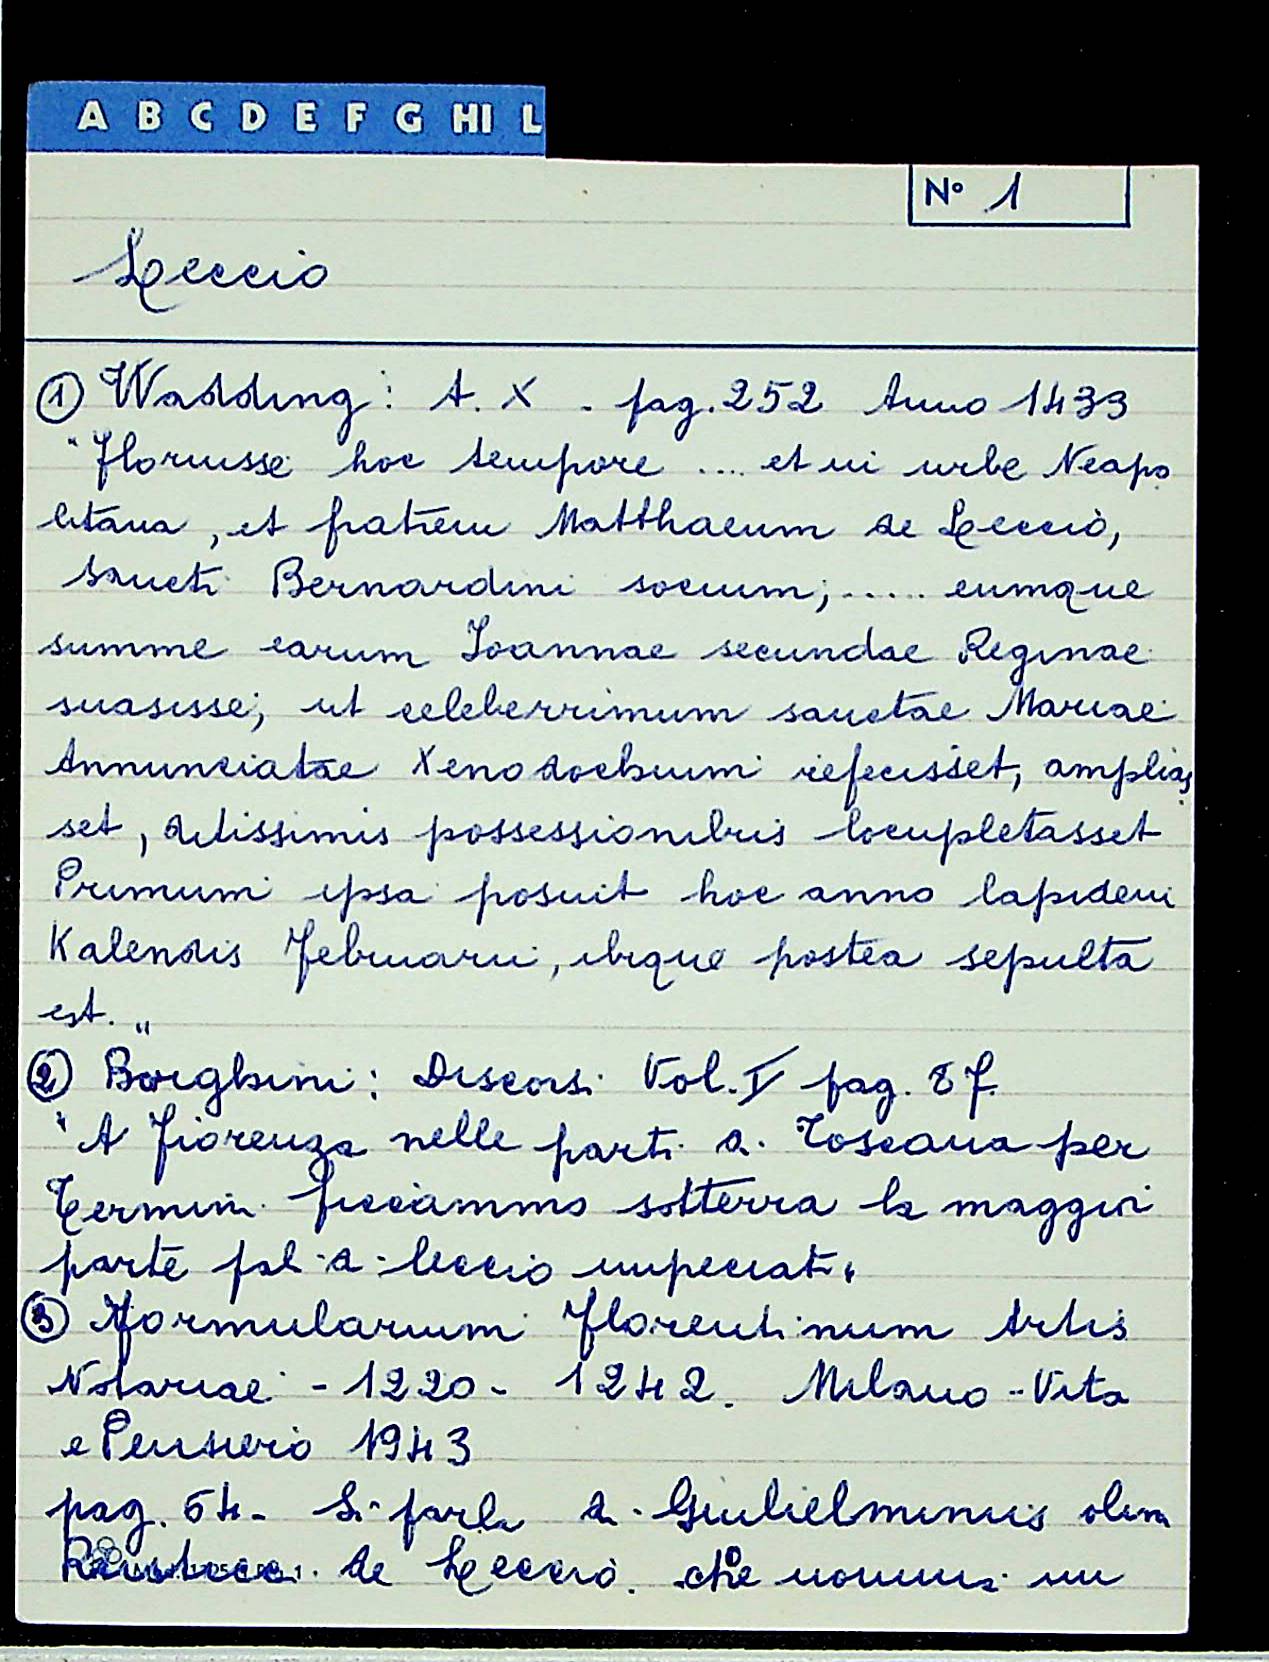 A B C D E F G HI L
N° 1
Leccio
① Wadding: A. X - pag. 252 Anno 1433
"Floruisse hoc tempore .... et in urbe Neapo
litana, et fratrem Matthaeum de Leccio,
Sancti Bernardini socium; ..... eumque
summe carum Ioannae secundae Reginae
suasisse, ut celeberrimum sanctae Mariae
Annunciatae Xenodochium refecisset, amplias
set, ditissimis possessionibus locupletasset
Primum ipsa posuit hoc anno lapidem
Kalendis Februarii, ibique postea sepulta
est. "
② Borghini: Discorsi Vol. V pag. 87.
"A Fiorenza nelle parti di Toscana per
Termini ficciammo sotterra la maggior
parte pali di leccio impeciati"
③ Formularium Florentinum Artis
Notariae - 1220 - 1242. Milano - Vita
e Pensiero 1943
pag. 64 - Si parla di Giulielminus olim
de Leccio. che nomina un